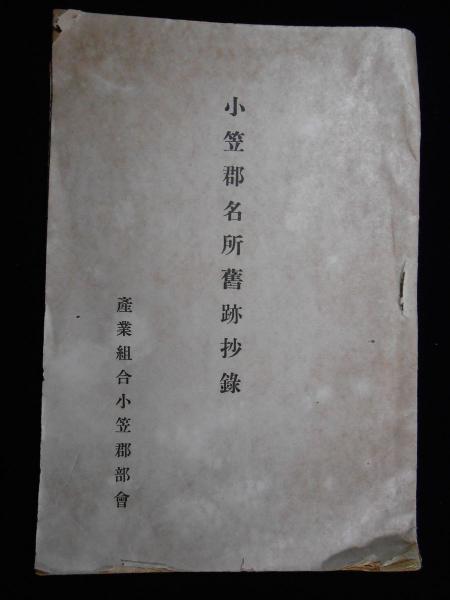 小笠郡名所舊跡抄錄
產業組合小笠郡部會